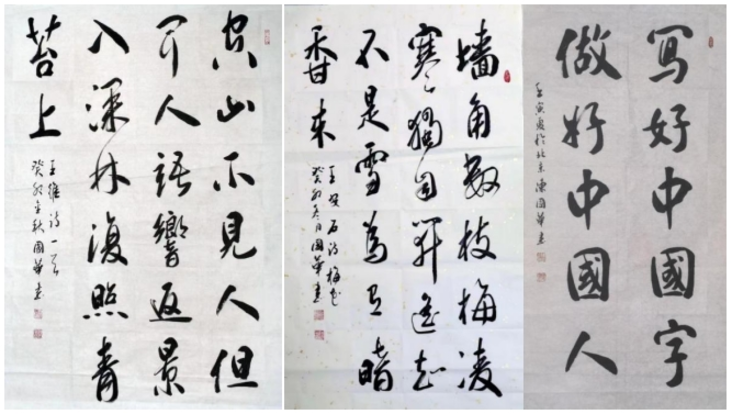 空山不見人但
聞人語響返景
入深林復照青
苔上
王維詩一首
癸卯金秋國華書
墙角数枝梅凌
寒獨自開遙知
不是雪為有暗
香來
王安石詩梅花
癸卯冬月國華書
写好中國字
做好中國人
壬寅夏於北京陳國華書